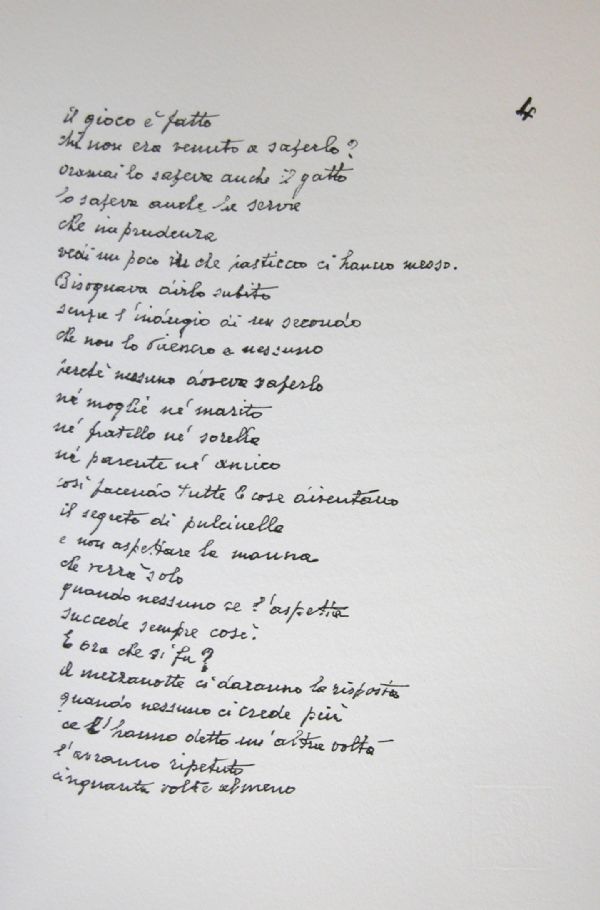 4
il gioco è fatto
chi non era venuto a saperlo?
oramai lo sapeva anche il gatto
lo sapeva anche le serve
che imprudenza
vedi un poco che pasticcio ci hanno messo.
Bisognava dirlo subito
senza l'indugio di un secondo
che non lo dicano a nessuno
perchè nessuno doveva saperlo
né moglie né marito
né fratello né sorella
né parente né amico
così facendo tutte le cose diventano
il segreto di pulcinella
e non aspettare la manna
che verrà solo
quando nessuno se l'aspetta
succede sempre così.
E ora che si fa?
a mezzanotte ci daranno la risposta
quando nessuno ci crede più
ce l'hanno detto un'altra volta
l'avranno ripetuto
cinquanta volte almeno